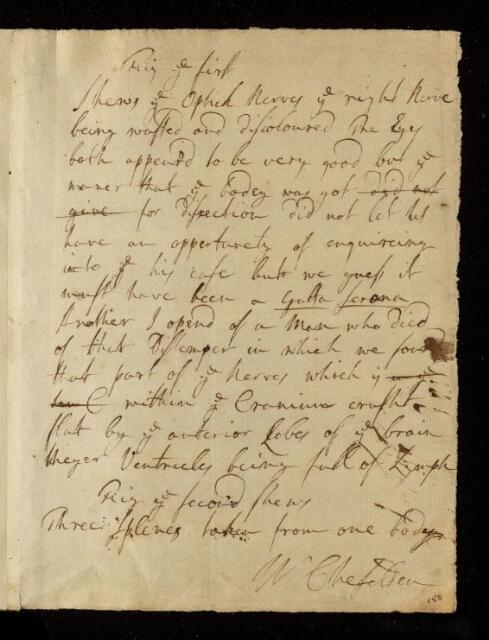 Fig ye first
Shews ye Optick Nerves ye right Nerve
being wasted and discoloured The Eys
both appeard to be very good but ye
maner that ye bodey was got did not
give for disection did not let us
have an oppertunety of enquireing
into ye his case but we guess it
must have been a Gutta Serena
Another I opend of a Man who died
of that Distemper in which we found
that part of ye Nerves which is
within ye Cranium crusht
flat by ye anterior Lobes of ye brain
theyer Ventricles being full of Lymph
Fig ye second shews
Three Spleens taken from one body
W Cheselden